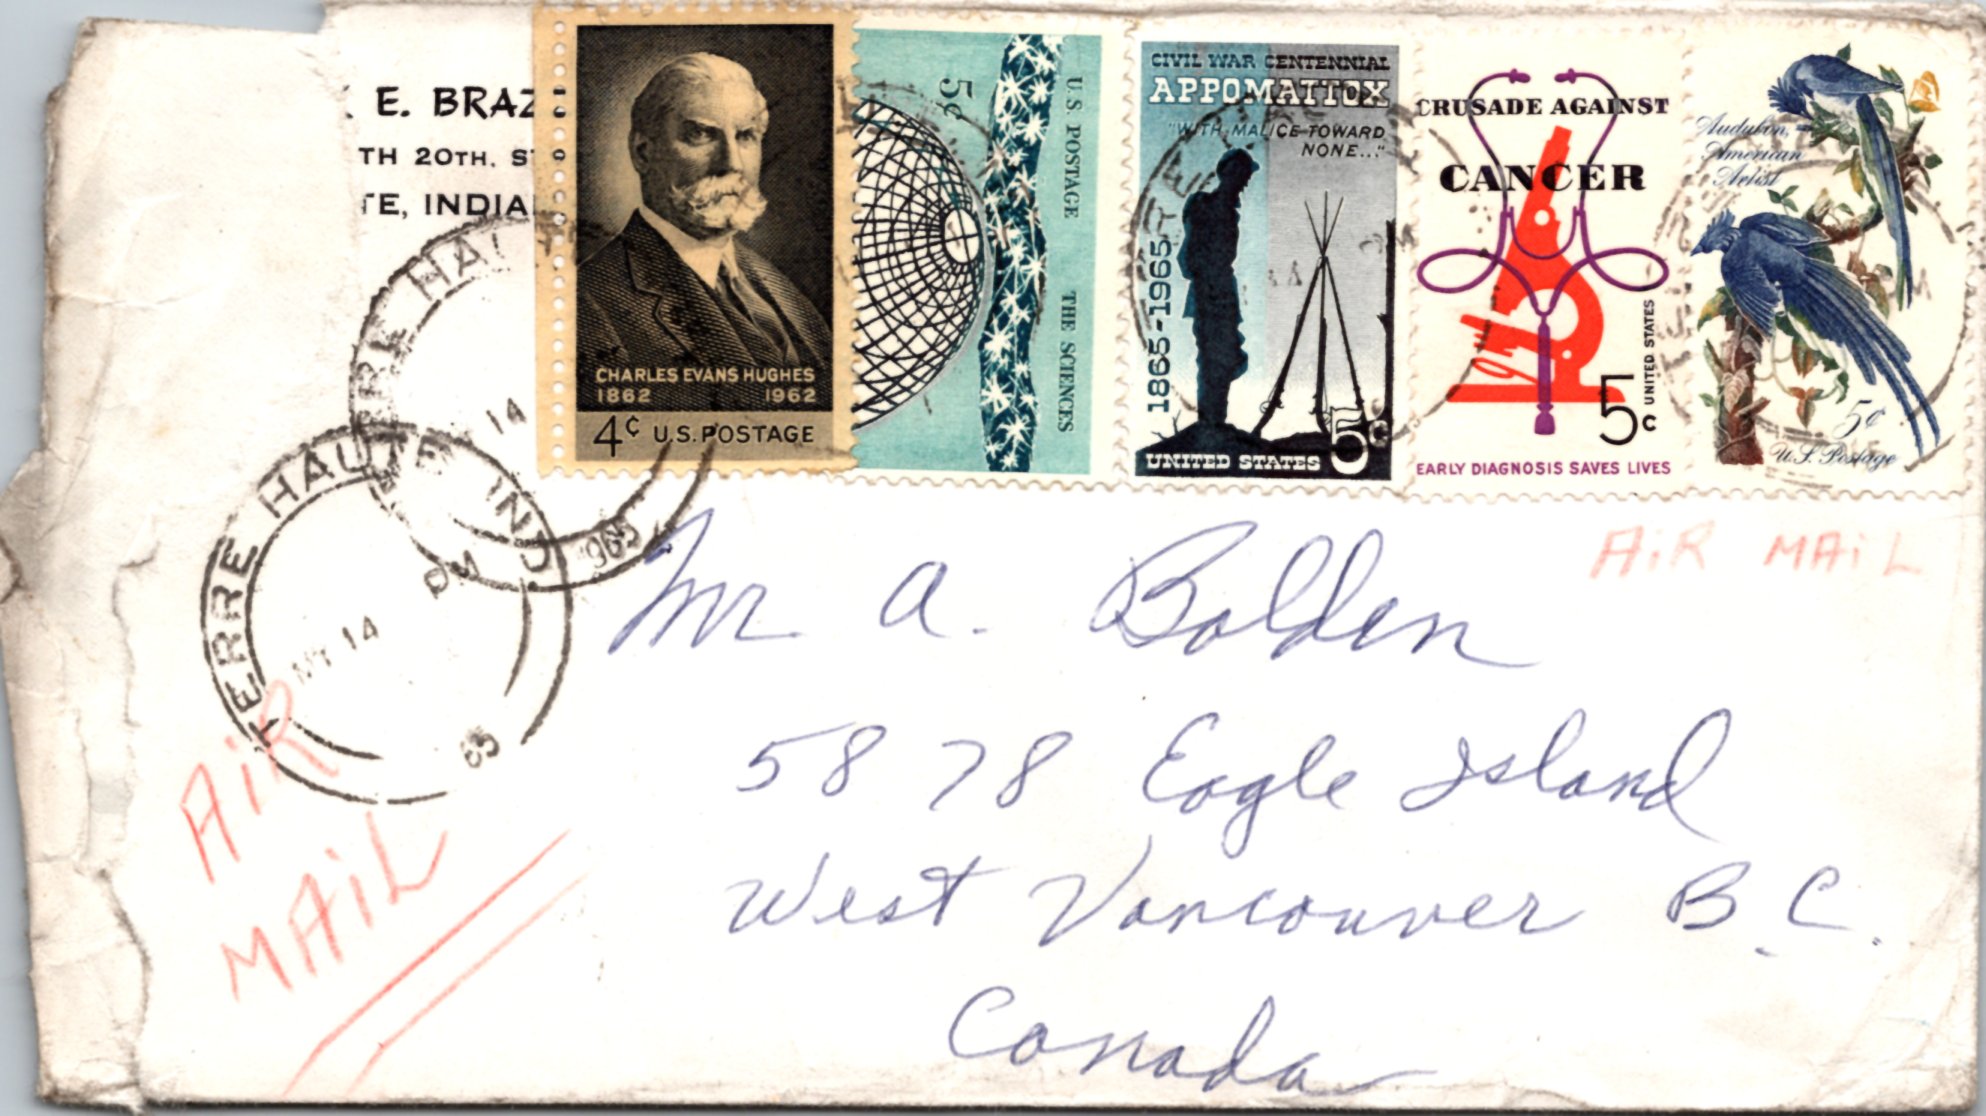 E. BRAZ
TH 20TH. S
TE, INDIA
CHARLES EVANS HUGHES
1862 1962
4¢ U.S. POSTAGE
5¢
U.S. POSTAGE THE SCIENCES
CIVIL WAR CENTENNIAL
APPOMATTOX
"WITH MALICE TOWARD
NONE..."
1865-1965
UNITED STATES 5¢
CRUSADE AGAINST
CANCER
5c
UNITED STATES
EARLY DIAGNOSIS SAVES LIVES
Audubon,
American
Artist
5¢
U.S. Postage
TERRE HAU
14
1965
TERRE HAUTE IND.
PM
MY 14
65
AiR MAiL
Mr A. Bolden
5878 Eagle Island
West Vancouver B.C.
Canada
AiR
MAiL